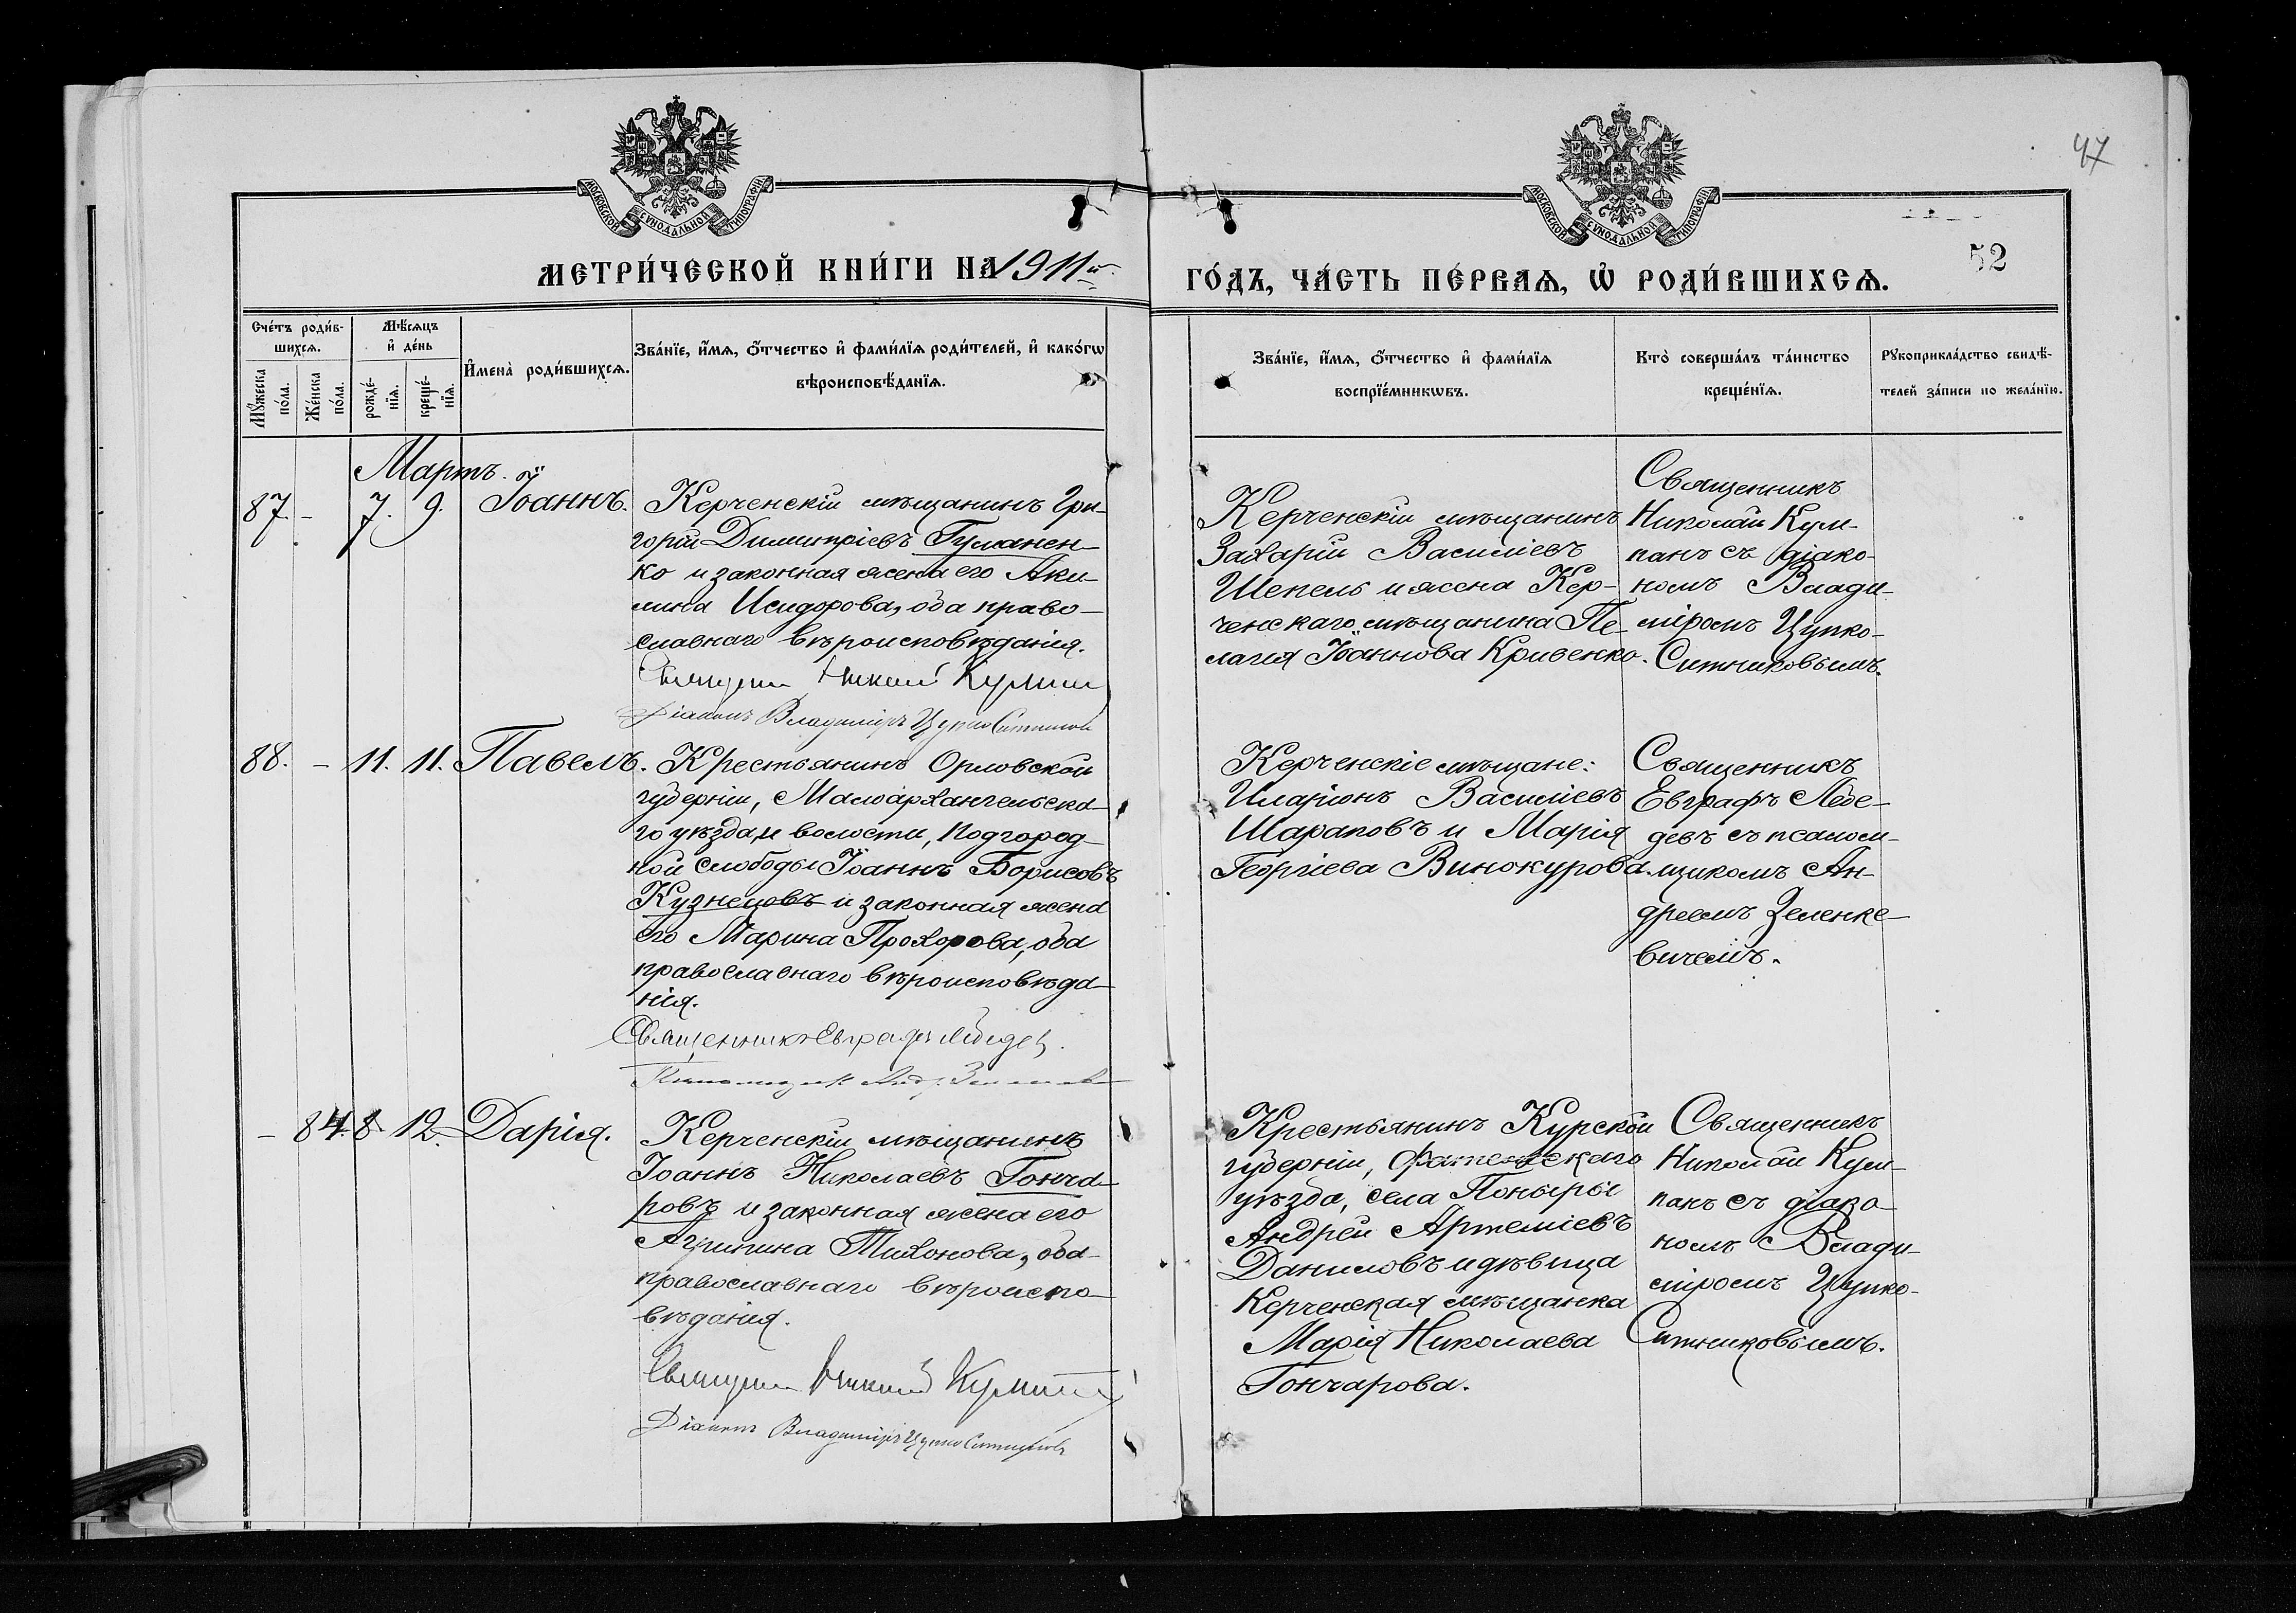 47
МОСКОВСКОЙ СѴНОДАЛЬНОЙ ТИПОГРАФІИ
МОСКОВСКОЙ СѴНОДАЛЬНОЙ ТИПОГРАФІИ
52
МЕТРИ́ЧЕСКОЙ КНИ́ГИ НА 1911й
ГО́ДЪ, ЧА́СТЬ ПЕ́РВАѦ, Ѡ҆ РОДИ́ВШИХСѦ.
Сче́тъ роди́в-
шихсѧ.
Мꙋ́жеска
по́ла.
Же́нска
по́ла.
Мѣ́сѧцъ
и҆ де́нь
рожде́-
нїѧ.
креще́-
нїѧ.
И҆мена̀ роди́вшихсѧ.
Зва́нїе, и҆́мѧ, ѻ҆́тчество и҆ фами́лїѧ роди́телей, и҆ како́гѡ
вѣроисповѣ́данїѧ.
Зва́нїе, и҆́мѧ, ѻ҆́тчество и҆ фами́лїѧ
воспрїе́мникѡвъ.
Кто̀ соверша́лъ та́инство
креще́нїѧ.
Рꙋкоприкла́дство свидѣ́-
телей за́писи по жела́нїю.
Мартъ.
87. - 7. 9. Іоаннъ.
Керченскій мѣщанинъ Гри-
горій Димитріевъ Гуманен-
ко и законная жена его Аки-
лина Исидорова, оба право-
славнаго вѣроисповѣданія.
Священникъ Николай Кумпан
Діаконъ Владиміръ Цупко Ситников
Керченскій мѣщанинъ
Захарій Василіевъ
Шепель и жена Кер-
ченскаго мѣщанина Пе-
лагія Іоаннова Кривенко.
Священникъ
Николай Кум-
панъ съ діако-
номъ Влади-
міромъ Цупко-
Ситниковымъ.
88. - 11. 11. Павелъ.
Крестьянинъ Орловской
губерніи, Малоархангельска-
го уѣзда, и волости, Подгород-
ной слободы Іоаннъ Борисовъ
Кузнецовъ и законная жена
его Марина Прохорова, оба
православнаго вѣроисповѣда-
нія.
Священникъ Евграфъ Лебедев.
Псаломщик Андр. Зеленкев
Керченскіе мѣщане:
Иларіонъ Василіевъ
Шараповъ и Марія
Георгіева Винокурова.
Священникъ
Евграфъ Лебе-
девъ съ псалом-
щикомъ Ан-
дреемъ Зеленке-
вичемъ.
- 84. 8. 12. Дарія.
Керченскій мѣщанинъ
Іоаннъ Николаевъ Гонча-
ровъ и законная жена его
Агрипина Тихонова, оба
православнаго вѣроиспо-
вѣданія.
Священникъ Николай Кумпан
Діаконъ Владиміръ Цупко Ситников
Крестьянинъ Курской
губерніи, Фатежскаго
уѣзда, села Поныры
Андрей Артеміевъ
Даниловъ и дѣвица
Керченская мѣщанка
Марія Николаева
Гончарова.
Священникъ
Николай Кум-
панъ съ діако-
номъ Влади-
міромъ Цупко-
Ситниковымъ.